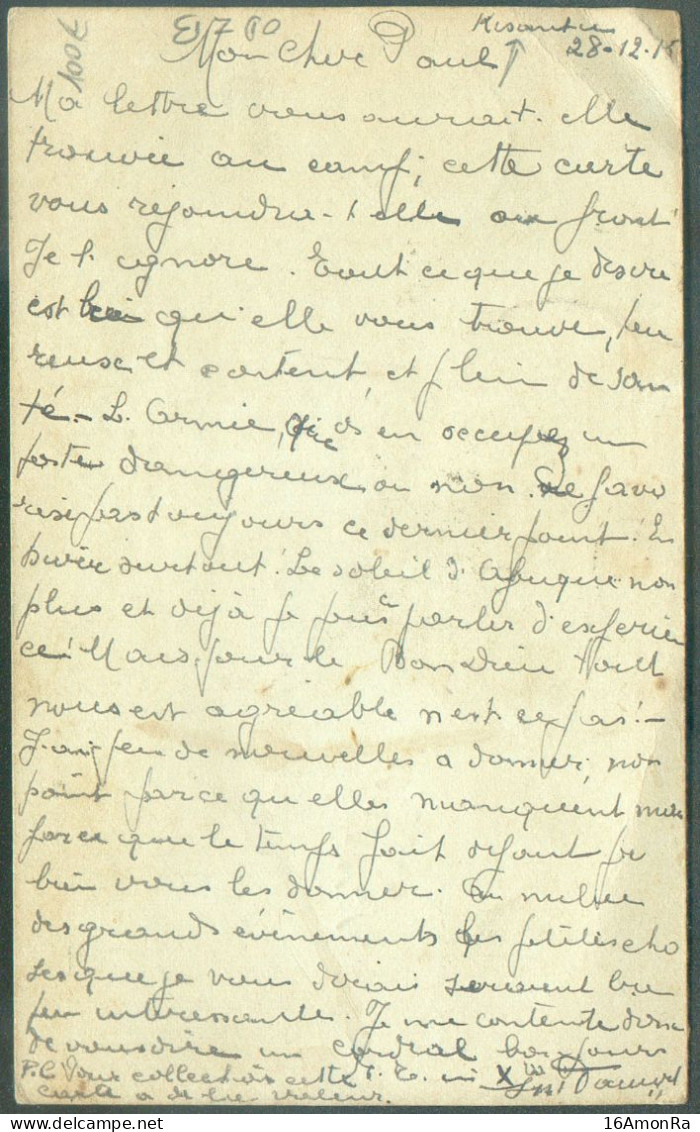 100€
Mon cher Paul
Kisantu
28-12-1
Ma lettre vous aurait-elle
trouvée au camp; cette carte
vous rejoindra-t-elle au front
Je l'ignore. Tout ce que je désire
est qu'elle vous trouve, heu
reux et content, et plein de san
té. - L'Armée, en occupez un
poste dangereux ou non. Ne favo
rise pas toujours ce dernier point! En
surtout! Le soleil d'Afrique non
plus et déjà je puis parler d'expérien
ce! Mais pour le Bon Dieu tout
nous est agréable n'est-ce pas! -
J'ai peu de nouvelles a donner, non
point parce qu'elles manquent mais
parce que le temps fait défaut pr
bien vous les donner. Au milieu
des grands événements les petites cho
ses que je vous dirais seraient bien
peu intéressantes. Je me contente donc
de vous dire un cordial bonjours
P.C. Pour collection cette
carte a de la valeur.
16AmonRa